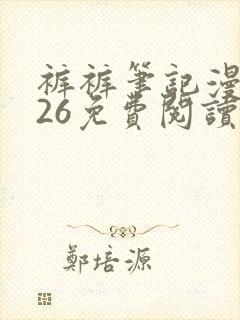 裤裤筆記漫
26免費閱讀
鄭培源